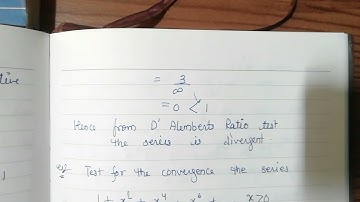 = 3/∞
= 0 < 1
Hence from D' Alemberts Ratio test
the series is divergent.
Test for the convergence the series